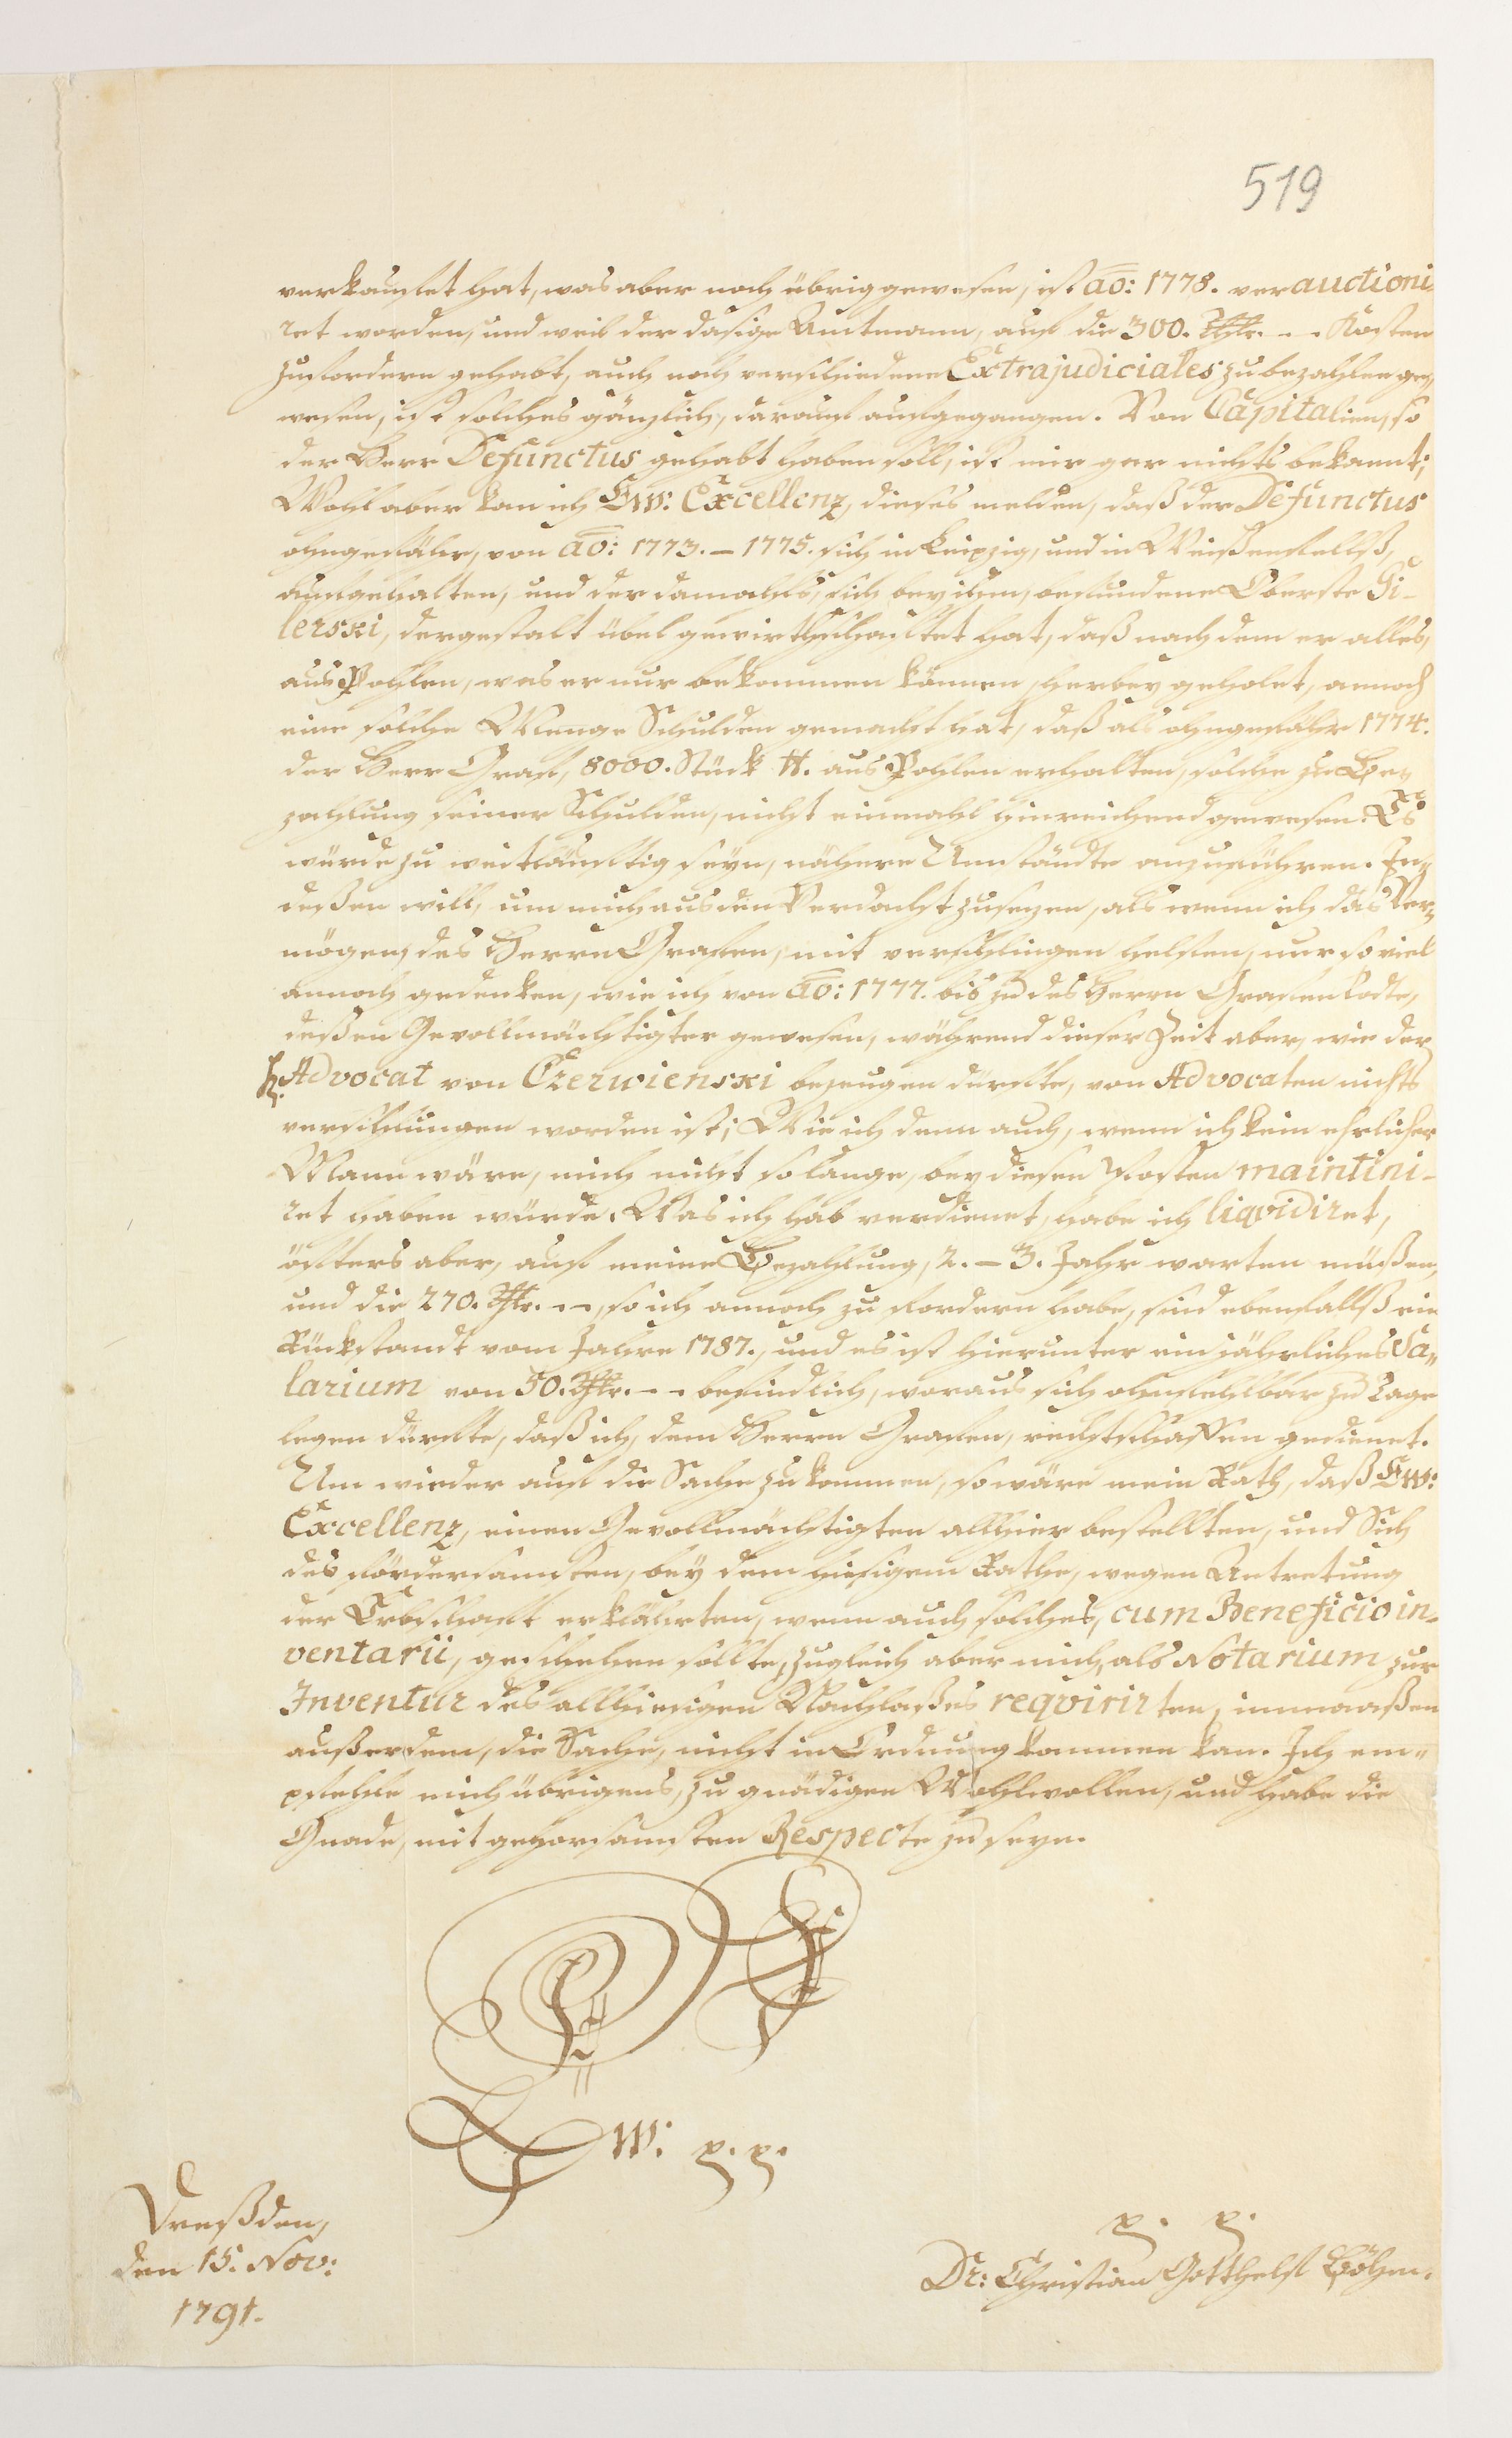 519
verkaufet hat, was aber noch übrig gewesen, ist ao: 1778. verauctioni-
ret worden, und weil der dasige Amtmann, auf die 300. Thlr. -.-. Kosten
zu fordern gehabt, auch noch verschiedene Extrajudiciales zu bezahlen ge-
wesen, ist solches gänzlich, darauf aufgegangen. Von Capitalien, so
der Herr Defunctus gehabt haben soll, ist mir gar nichts bekannt;
Wohl aber kan ich Ew: Excellenz, dieses melden, daß der Defunctus
ohngefähr, von ao: 1773. – 1775. sich in Leipzig, und in Weißenfellß,
aufgehalten, und der damahls, sich bey ihm, befundene Oberste Gi-
lerski, dergestalt übel gewirthschafftet hat, daß nach dem er alles,
aus Pohlen, was er nur bekommen können, herbey geholet, annoch
eine solche Menge Schulden gemacht hat, daß als ohngefähr 1774.
der Herr Graf, 8000. Stück #. aus Pohlen erhalten, solche zu Be-
zahlung seiner Schulden, nicht einmahl hinreichend gewesen. Es
würde zu weitläufftig seyn, nähere Umständte anzuführen. In-
deßen will, um mich aus den Verdacht zu sezen, als wenn ich das Ver-
mögen, des Herrn Grafen, mit verschlingen helffen, nur so viel
annoch gedenken, wie ich von ao: 1777. bis zu des Herrn Grafen Tode,
deßen Gevollmächtigter gewesen, während dieser Zeit aber, wie der
H. Advocat von Czerwienski bezeugen dürffte, von Advocaten nichts
verschlungen worden ist; Wie ich denn auch, wenn ich kein ehrlicher
Mann wäre, mich nicht so lange, bey diesen Posten maintini-
ret haben würde. Was ich hab verdienet, habe ich liqvidiret,
öffters aber, auf meine Bezahlung, 2. – 3. Jahr warten müßen,
und die 270. Thlr. -.-, so ich annoch zu fordern habe, sind ebenfallß ein
Rückstandt vom Jahre 1787., und es ist hierunter ein jährliches Sa-
larium von 50. Thlr. -.-. befindlich, woraus sich ohnfehlbar zu Tage
legen dürffte, daß ich, dem Herrn Grafen, rechtschaffen gedienet.
Um wieder auf die Sache zu kommen, so wäre mein Rath, daß Ew:
Excellenz, einen Gevollmächtigten allhier bestellten, und Sich
des fördersamsten, bey dem hiesigem Rathe, wegen Antretung
der Erbschafft erklährten, wenn auch solches, cum Beneficio in-
ventarii, geschehen sollte, zugleich aber mich, als Notarium zur
Inventur des allhiesigen Nachlaßes reqvirirten, immaaßen
außerdem, die Sache, nicht in Ordnung kommen kan. Ich em-
pfehle mich übrigens, zu gnädigen Wohlwollen, und habe die
Gnade, mit gehorsamsten Respecte zu seyn.
Ew: p. p.
Dreßden,
den 15. Nov:
1791.
p. p.
Dr: Christian Gotthelf Böhm.